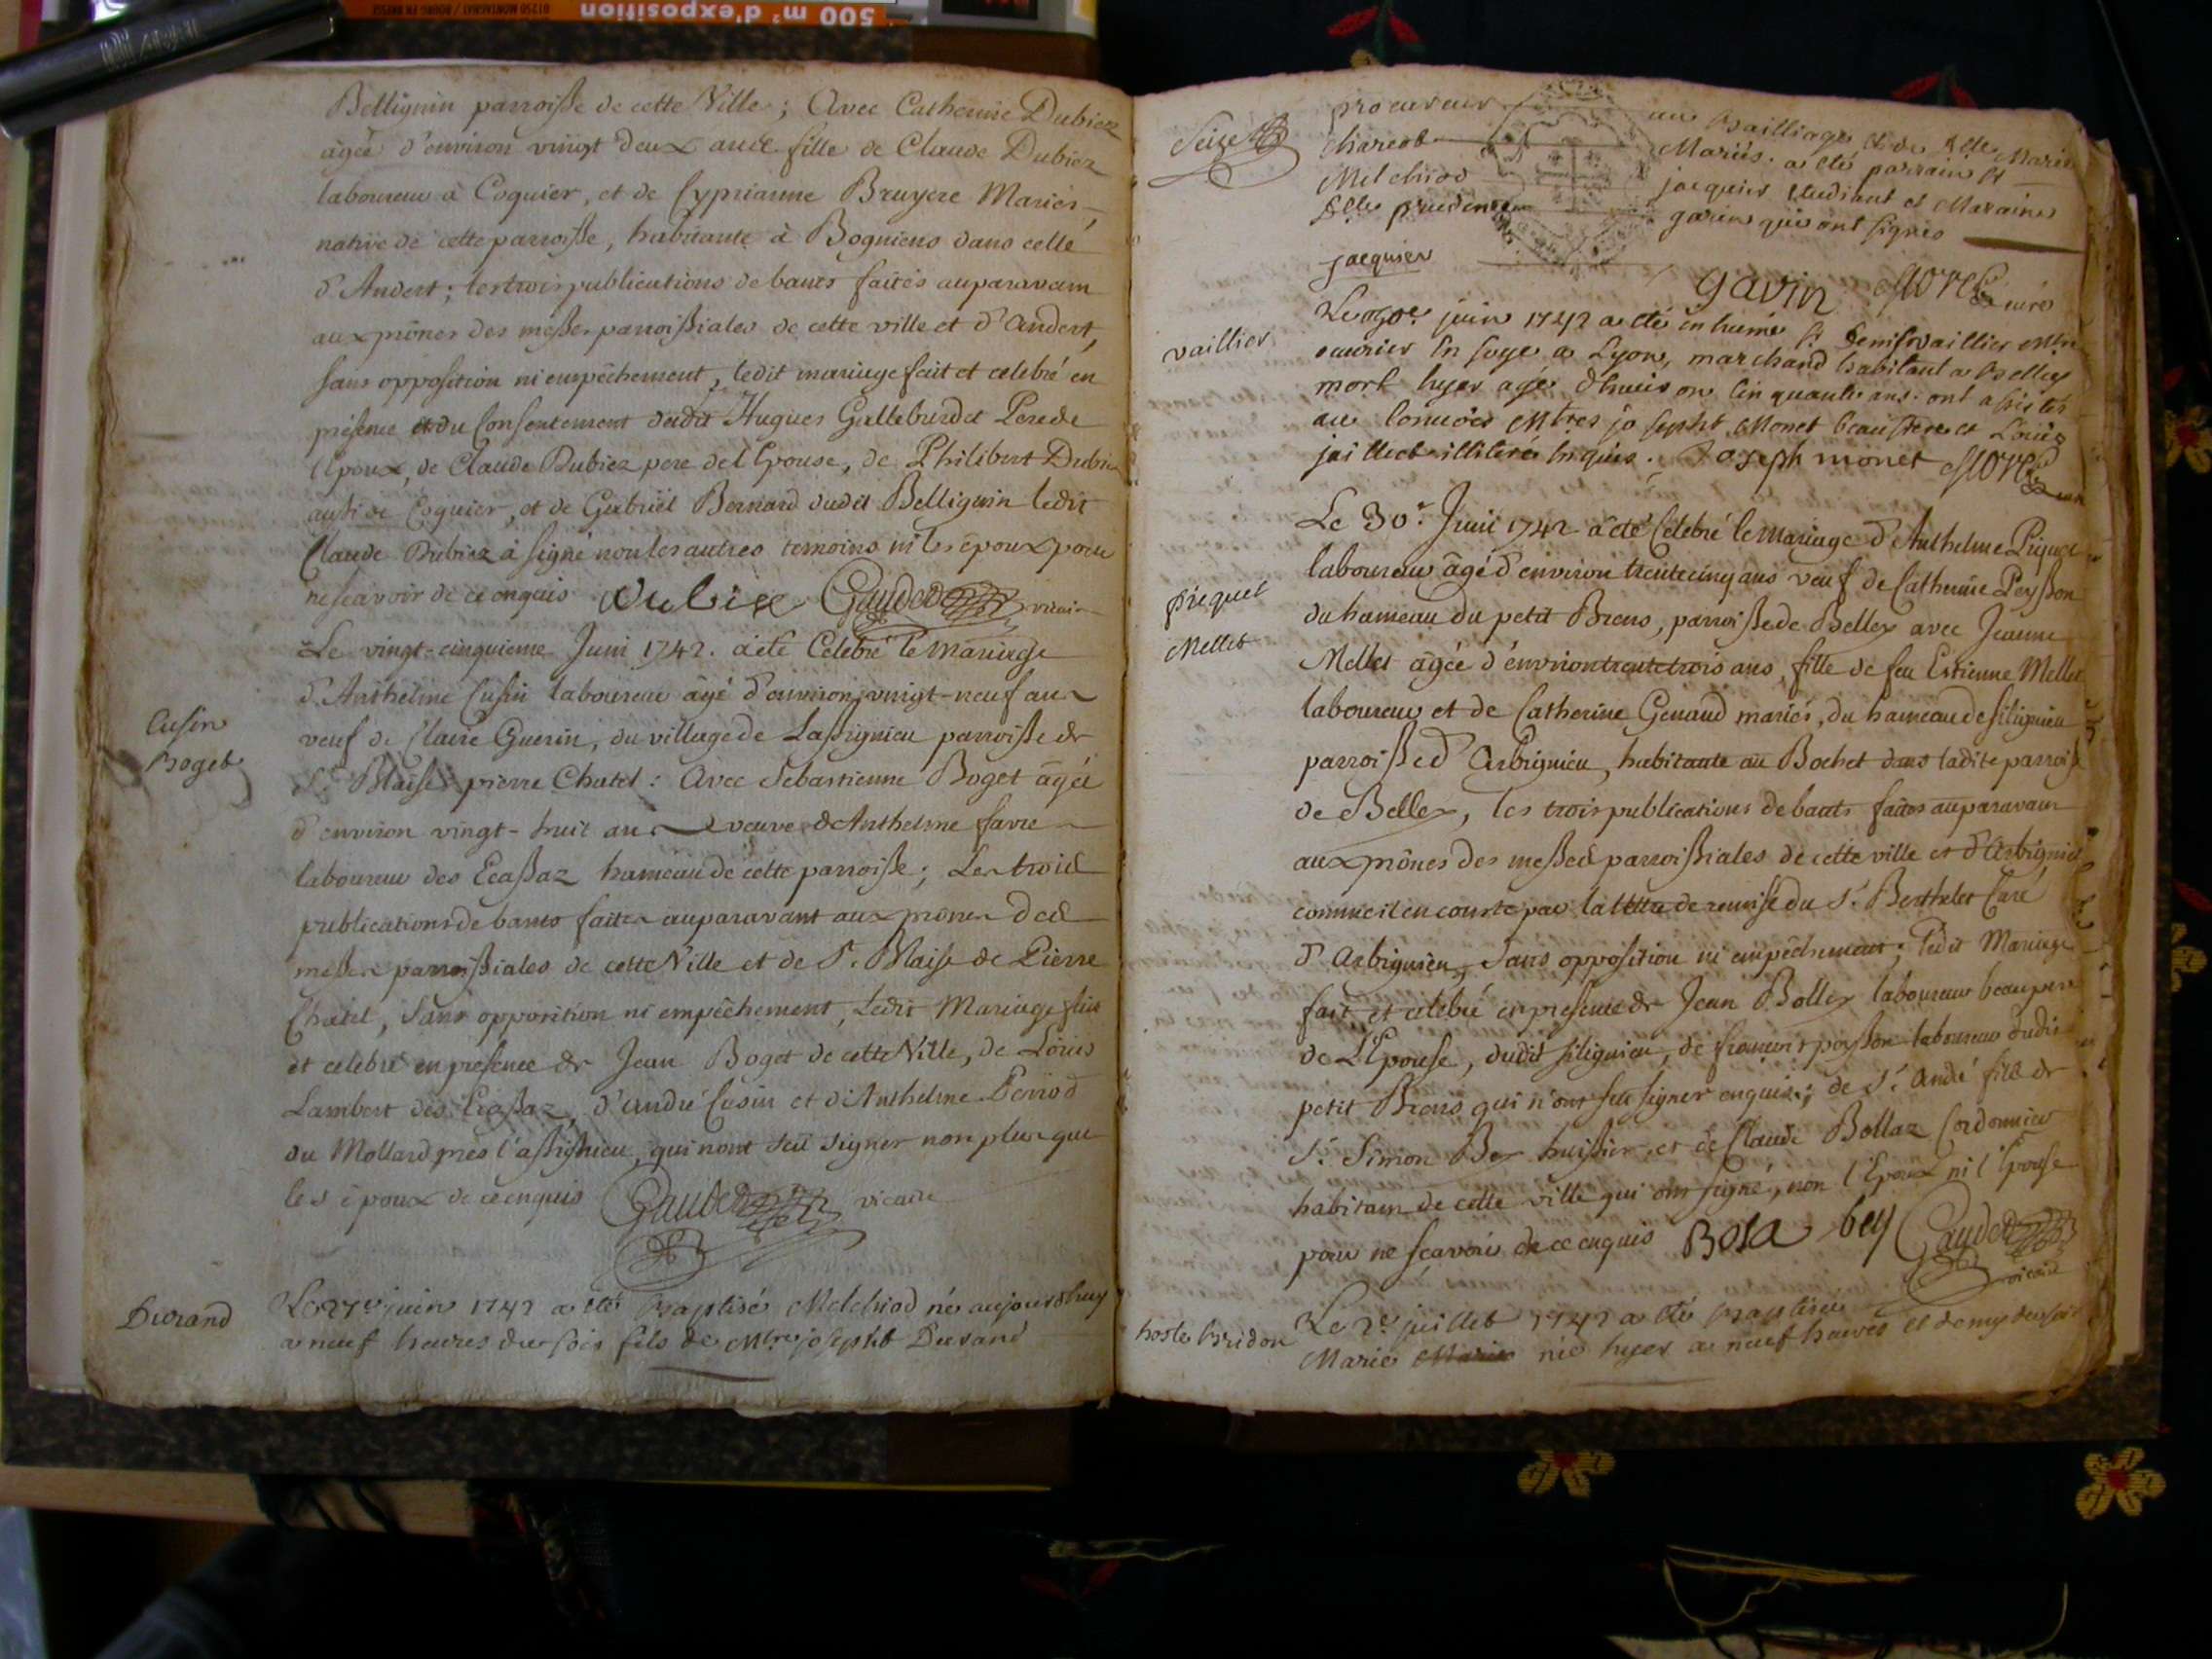 500 m² d'exposition
01250 MONTAGNAT / BOURG EN BRESSE
Bellignin parroisse de cette Ville ; Avec Catherine Dubiez
âgée d'environ vingt deux ans fille de Claude Dubiez
laboureur à Coquier, et de Cyprianne Bruyere Mariés,
native de cette parroisse, habitante à Bogniens dans celle
d'Andert ; les trois publications de bants faites auparavant
aux prônes des messes parroissiales de cette ville et d'Andert,
sans opposition ni empêchement, ledit mariage fait et celebré en
présence et du Consentement dudit Hugues Galleburdet Pere de
l'Epoux, de Claude Dubiez pere de l'Epouse, de Philibert Dubiez
aussi de Coquier, et de Gabriel Bernard dudit Bellignin ledit
Claude Dubiez à signé non les autres temoins ni les époux pour
ne scavoir de ce enquis Dubiex Gaudet vicaire
Cusin
Boget
Le vingt-cinquieme Juin 1742. a été Celebré le Mariage
d'Anthelme Cusin laboureur âgé d'environ vingt-neuf ans
veuf de Claire Guerin, du village de Lassignieu parroisse de
St. Blaise pierre Chatel : Avec Sebastienne Boget âgée
d'environ vingt-huit ans veuve d'Anthelme favre
laboureur des Ecassaz hameau de cette parroisse ; Les trois
publications de bants faites auparavant aux prônes des
messes parroissiales de cette Ville et de St. Blaise de Pierre
Chatel, Sans opposition ni empêchement, Ledit Mariage fait
et celebré en presence de Jean Boget de cette Ville, de Loüis
Lambert des Ecassaz, d'andré Cusin et d'Anthelme Perriod
du Mollard près Lassignieu, qui n'ont sçu signer non plus que
les époux de ce enquis Gaudet vicaire
Durand
Le 27e juin 1742 a été Baptisé Melchiod né aujourdhuy
a neuf heures du soir fils de Mtre josepht Durand
Seize
procureur au Bailliage et de Dlle Marie
charcot Mariés. a été parrain Sr
Melchiod jacquier etudiant et Maraine
Dlle prudence garin qui ont signés
jacquier Gavin Morel curé
vaillier
Le 30e juin 1742 a été inhumé Sr Denis vaillier Mtre
ouvrier En soye a Lyon, marchand habitant a Belley
mort hyer agé d'environ Cinquante ans. ont assistés
au Convoi Mtres josepht Monet beaufrere et Louis
jaillet illiteré Enquis. Joseph monet Morel curé
piquet
Mellet
Le 30e. Juin 1742 a été Celebré le Mariage d'Anthelme Piquet
laboureur âgé d'environ trente cinq ans veuf de Catherine Peysson
du hameau du petit Brens, parroisse de Belley avec Jeanne
Mellet âgée d'environ trente trois ans, fille de feu Estienne Mellet
laboureur et de Catherine Genaud mariés, du hameau de Silignieu
parroisse d'Arbignieu, habitante au Bochet dans ladite parroisse
de Belley, les trois publications de bants faites auparavant
aux prônes des messes parroissiales de cette ville et d'Arbignieu
comme il en conste par la lettre de remise du Sr. Berthelet Curé
d'Arbignieu, Sans opposition ni empêchement ; ledit Mariage
fait et celebré en presence de Jean Bolley laboureur beaupere
de l'Epouse, dudit Silignieu, de françois peysson laboureur dudit
petit Brens qui n'ont sçu signer enquis ; de Sr. André fils de
Sr. Simon Bey huissier, et de Claude Bollaz Cordonnier
habitans de cette ville qui ont signé, non l'Epoux ni l'Epouse
pour ne scavoir de ce enquis Bola bey Gaudet
vicaire
hoste Bridon
Le 2e juillet 1742 a été Baptisée
Marie née hyer a neuf heures et demy du soir